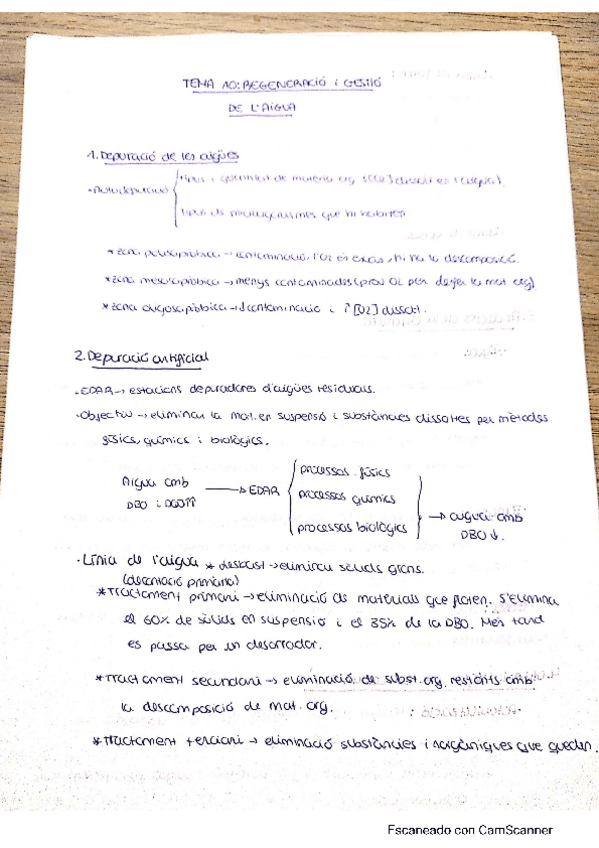 TEMA 10: REGENERACIÓ i GESTIÓ
DE L'AIGUA
1. Depuració de les aigües
• Autodepuració
tipus i quantitat de matèria org. i [O2] dissolt en l'aigua).
tipus de microorganismes que hi habiten
* zona polisapròbica → contaminació, l'O2 és escàs, hi ha la descomposició.
* zona mesosapròbica → menys contaminades (prou O2 per degr la mat org).
* zona oligosapròbica → ↓contaminació i ↑[O2] dissolt.
2. Depuració artificial
• EDAR → estacions depuradores d'aigües residuals.
• Objectiu → eliminar la mat. en suspensió i substàncies dissoltes per mètodes
físics, químics i biològics.
Aigua amb
DBO i DQO↑↑
→ EDAR
processos físics
processos químics
processos biològics
→ aigua amb
DBO ↓.
• Línia de l'aigua * desbast → eliminar sòlids grans.
(decantació primària)
* Tractament primari → eliminació de materials que floten. S'elimina
el 60% de sòlids en suspensió i el 35% de la DBO. Més tard
es passa per un desorrador.
* Tractament secundari → eliminació de subst. org. restants amb
la descomposició de mat. org.
* Tractament terciari → eliminació substàncies inorgàniques que queden.
Escaneado con CamScanner